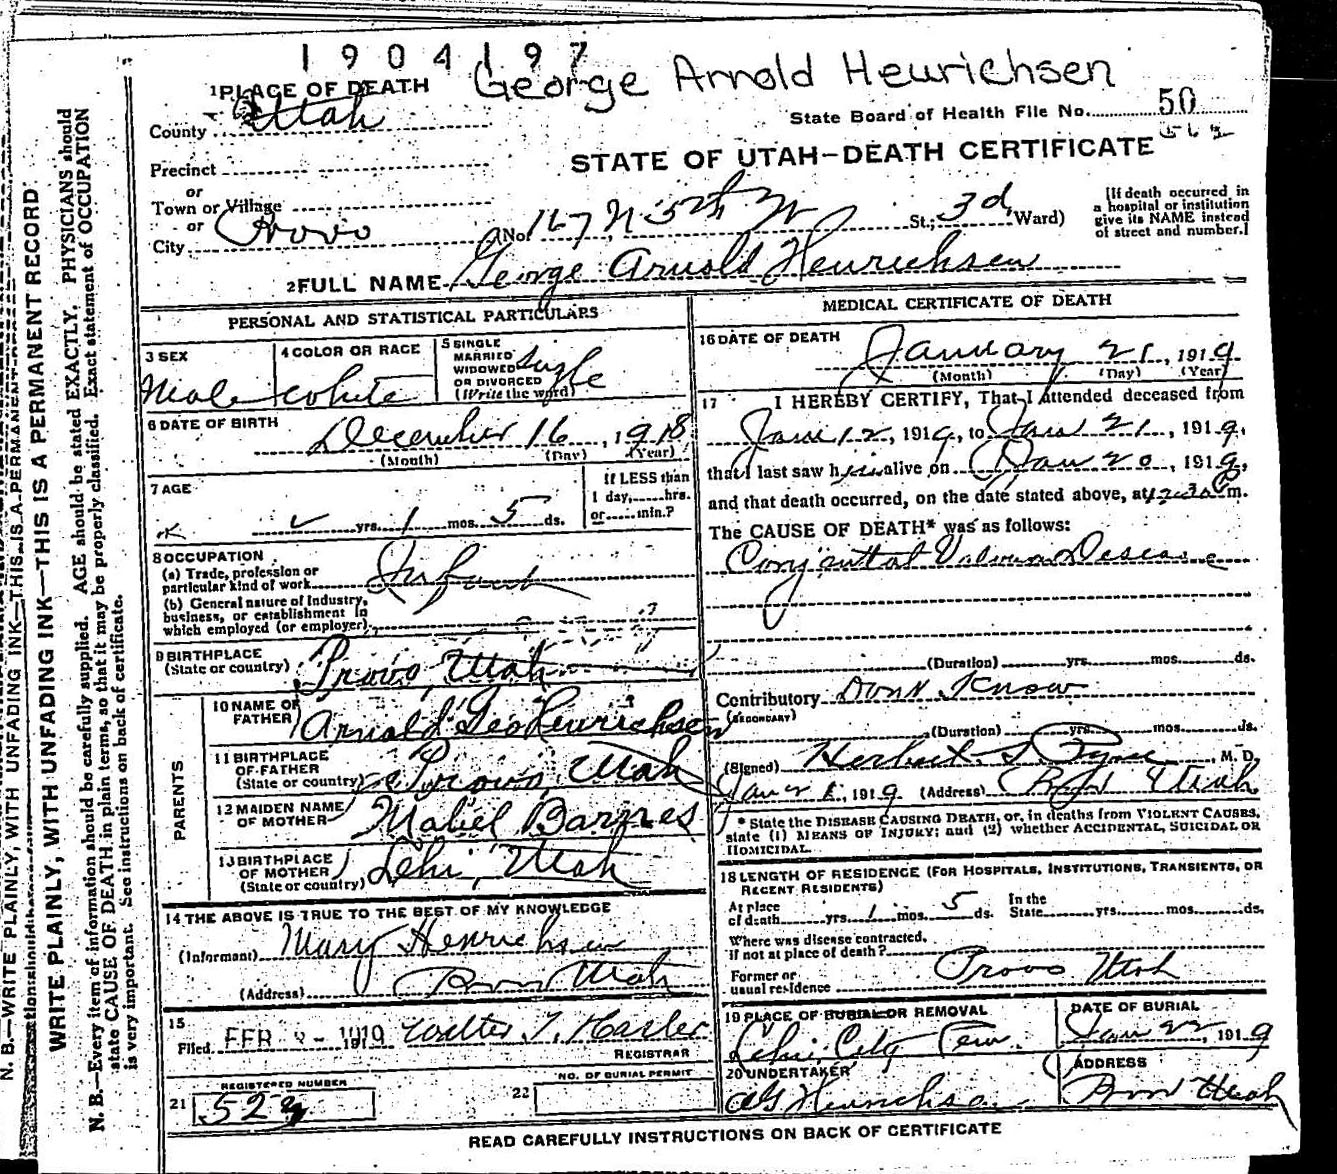 1904197
George Arnold Heurichsen
1 PLACE OF DEATH
County Utah
State Board of Health File No. 50
Precinct
STATE OF UTAH—DEATH CERTIFICATE
or
Town or Village
or
City Provo No. 167 N 5th W St.; 3d Ward)
[If death occurred in
a hospital or institution
give its NAME instead
of street and number.]
2 FULL NAME George Arnold Heurichsen
PERSONAL AND STATISTICAL PARTICULARS
3 SEX
Male
4 COLOR OR RACE
White
5 SINGLE
MARRIED
WIDOWED
OR DIVORCED
(Write the word)
Single
6 DATE OF BIRTH
December 16, 1918
(Month) (Day) (Year)
7 AGE
yrs. 1 mos. 5 ds.
If LESS than
1 day, hrs.
or min.?
8 OCCUPATION
(a) Trade, profession or
particular kind of work Infant
(b) General nature of Industry,
business, or establishment in
which employed (or employer)
9 BIRTHPLACE
(State or country) Provo, Utah
PARENTS
10 NAME OF
FATHER Arnold Geo Heurichsen
11 BIRTHPLACE
OF FATHER
(State or country) Provo, Utah
12 MAIDEN NAME
OF MOTHER Mabel Barnes
13 BIRTHPLACE
OF MOTHER
(State or country) Lehi, Utah
14 THE ABOVE IS TRUE TO THE BEST OF MY KNOWLEDGE
(Informant) Mary Henrichsen
(Address) Provo Utah
15
Filed FEB 1919 Walter T. Hasler
REGISTRAR
REGISTERED NUMBER
21 52
22 NO. OF BURIAL PERMIT
MEDICAL CERTIFICATE OF DEATH
16 DATE OF DEATH
January 21, 1919
(Month) (Day) (Year)
17 I HEREBY CERTIFY, That I attended deceased from
Jan 12, 1919, to Jan 21, 1919,
that I last saw him alive on Jan 20, 1919,
and that death occurred, on the date stated above, at m.
The CAUSE OF DEATH* was as follows:
(Duration) yrs. mos. ds.
Contributory Dont Know
(SECONDARY)
(Duration) yrs. mos. ds.
(Signed) Herbert S. Pyne, M. D.
Jan 21, 1919 (Address) Provo Utah
* State the DISEASE CAUSING DEATH, or, in deaths from VIOLENT CAUSES,
state (1) MEANS OF INJURY; and (2) whether ACCIDENTAL, SUICIDAL OR
HOMICIDAL.
18 LENGTH OF RESIDENCE (FOR HOSPITALS, INSTITUTIONS, TRANSIENTS, OR
RECENT RESIDENTS)
At place
of death yrs. 1 mos. 5 ds.
In the
State yrs. mos. ds.
Where was disease contracted,
if not at place of death?
Former or
usual residence Provo Utah
19 PLACE OF BURIAL OR REMOVAL
Lehi City Cem.
DATE OF BURIAL
Jan 22, 1919
20 UNDERTAKER
AG Heurichsen
ADDRESS
Provo Utah
READ CAREFULLY INSTRUCTIONS ON BACK OF CERTIFICATE
N. B.—WRITE PLAINLY, WITH UNFADING INK—THIS IS A PERMANENT RECORD
WRITE PLAINLY, WITH UNFADING INK—THIS IS A PERMANENT RECORD
N. B.—Every item of information should be carefully supplied. AGE should be stated EXACTLY. PHYSICIANS should
state CAUSE OF DEATH in plain terms, so that it may be properly classified. Exact statement of OCCUPATION
is very important. See instructions on back of certificate.